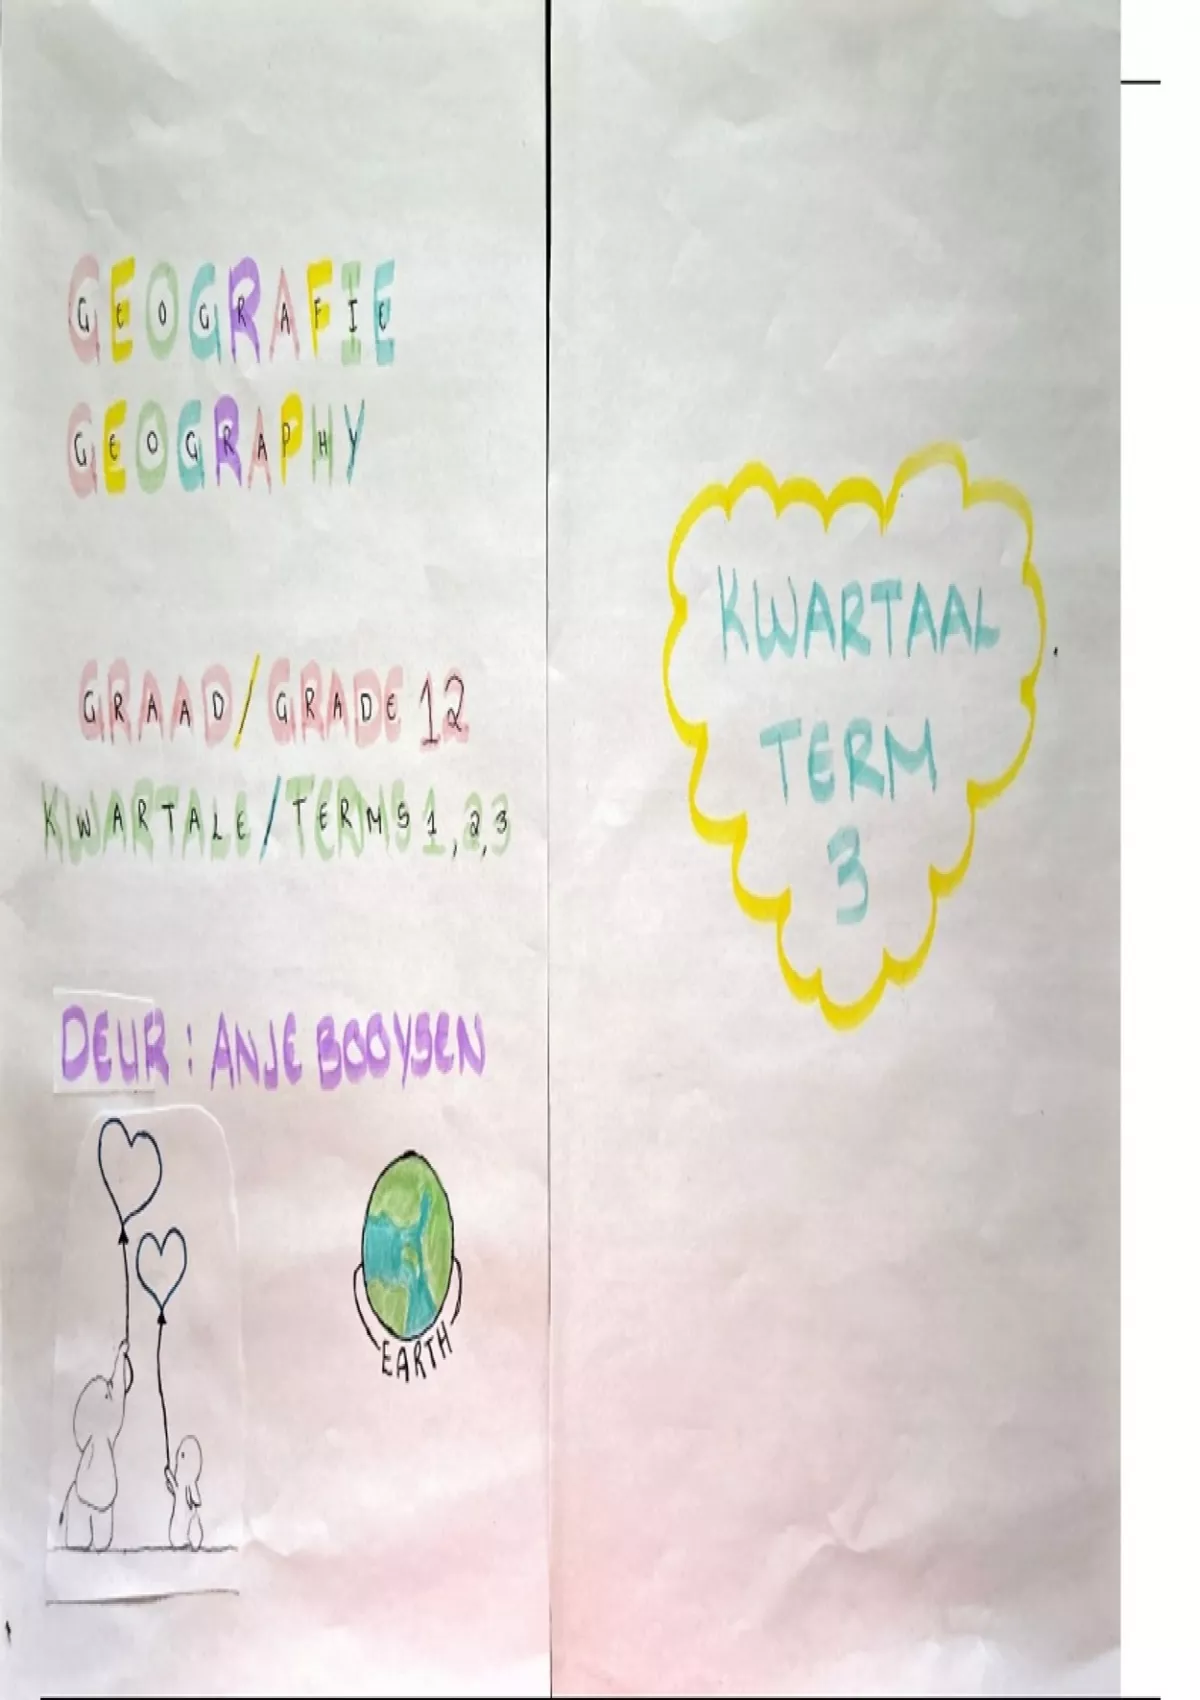 GEOGRAFIE
GEOGRAPHY
GRAAD/GRADE 12
KWARTALE/TERMS 1,2,3
DEUR: ANJE BOOYSEN
EARTH
KWARTAAL
TERM
3